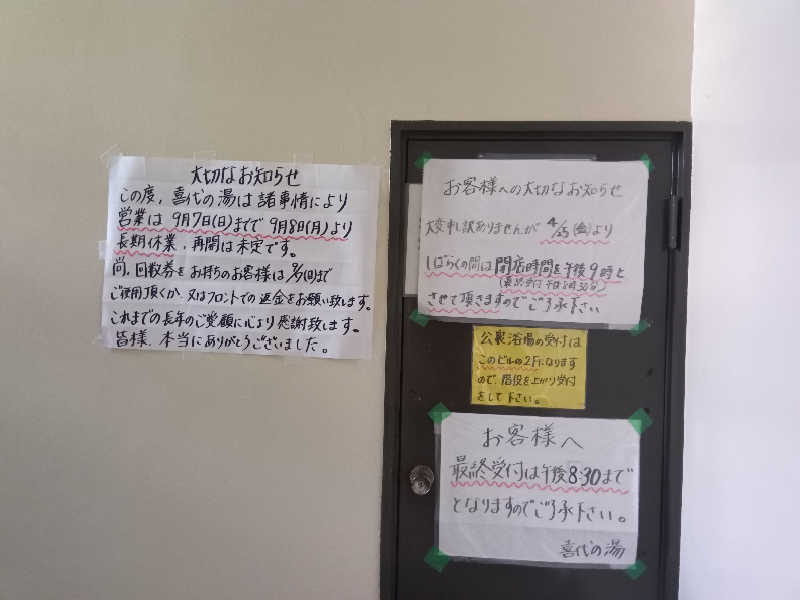 大切なお知らせ
この度、喜代の湯は諸事情により
営業は9月7日(日)までで9月8日(月)より
長期休業、再開は未定です。
尚、回数券をお持ちのお客様は9/7(日)まで
ご使用頂くか、又はフロントでの返金をお願い致します。
これまでの長年のご愛顧に心より感謝致します。
皆様、本当にありがとうございました。
お客様への大切なお知らせ
大変申し訳ありませんが4/25(金)より
しばらくの間は閉店時間を午後9時と
(最終受付 午後8時30分)
させて頂きますのでご了承下さい
公衆浴場の受付は
このビルの2Fになります
ので、階段を上がり受付
をして下さい。
お客様へ
最終受付は午後8:30まで
となりますのでご了承下さい。
喜代の湯